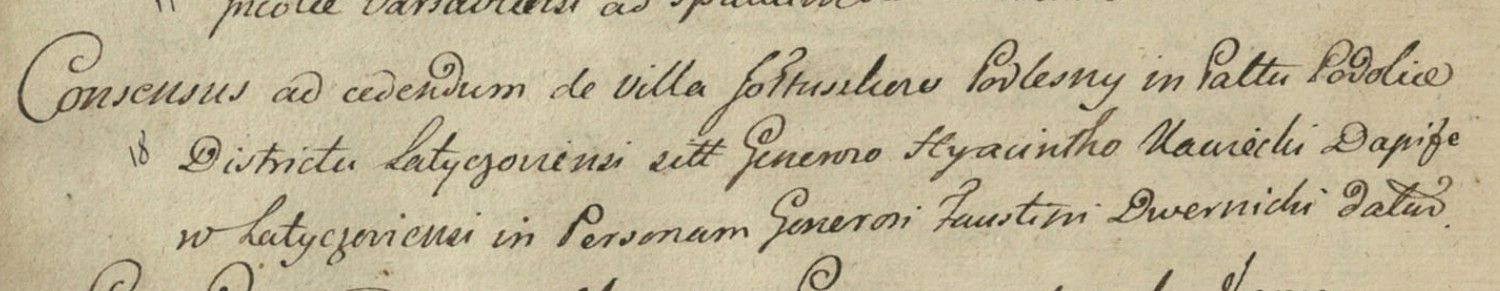 Varsaviensi ad
Consensus ad cedendum de villa Podlesny in Pattu Podoliæ
18 Districtu Latyczoviensi sitt Generoso Hyacintho Dapife
ro Latyczoviensi in Personam Generosi Faustini Dwernicki datur.